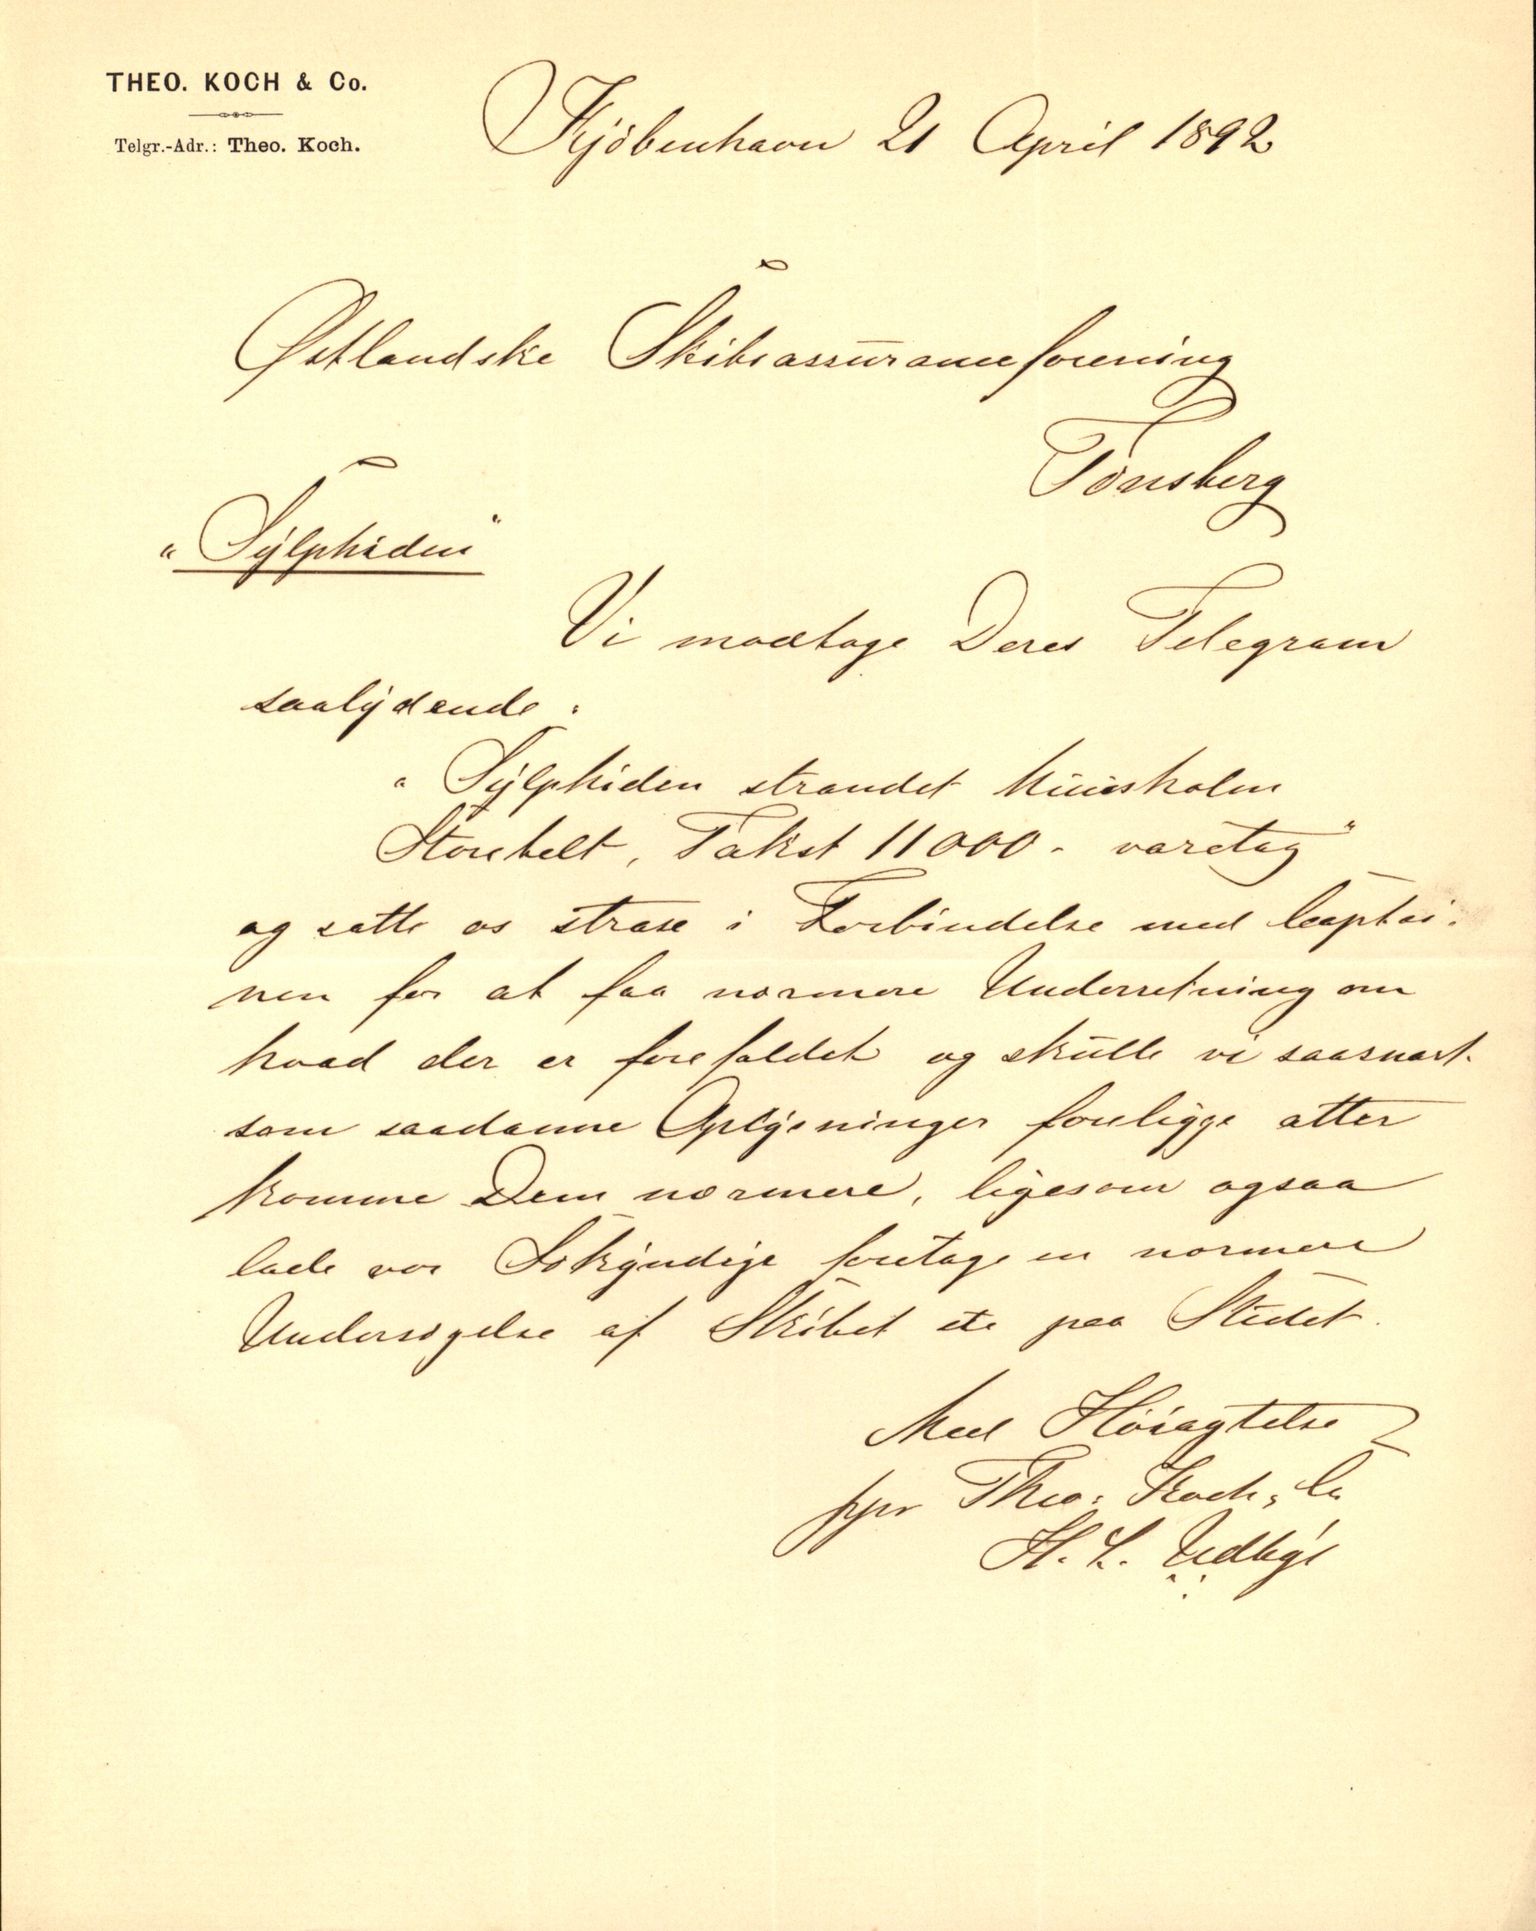 THEO. KOCH & Co.
Telgr.-Adr.: Theo. Koch.
Kjöbenhavn 21 April 1892
Østlandske Skibsassuranceforening
Tönsberg
"Sylphiden"
Vi modtage Deres Telegram
saalydende:
"Sylphiden strandet Muusholm
Storebelt, Takst 11000 - varetag"
og satte os strax i Forbindelse med Captai-
nen for at faa nærmere Underretning om
hvad der er forefaldet og skulle vi saasnart
som saadanne Oplysninger foreligge atter
komme Dem nærmere, ligesom ogsaa
lade vor Sökyndige foretage en nærmere
Undersögelse af Skibet etc paa Stedet.
Med Höiagtelse
ppr Theo. Koch & Co
H. L.